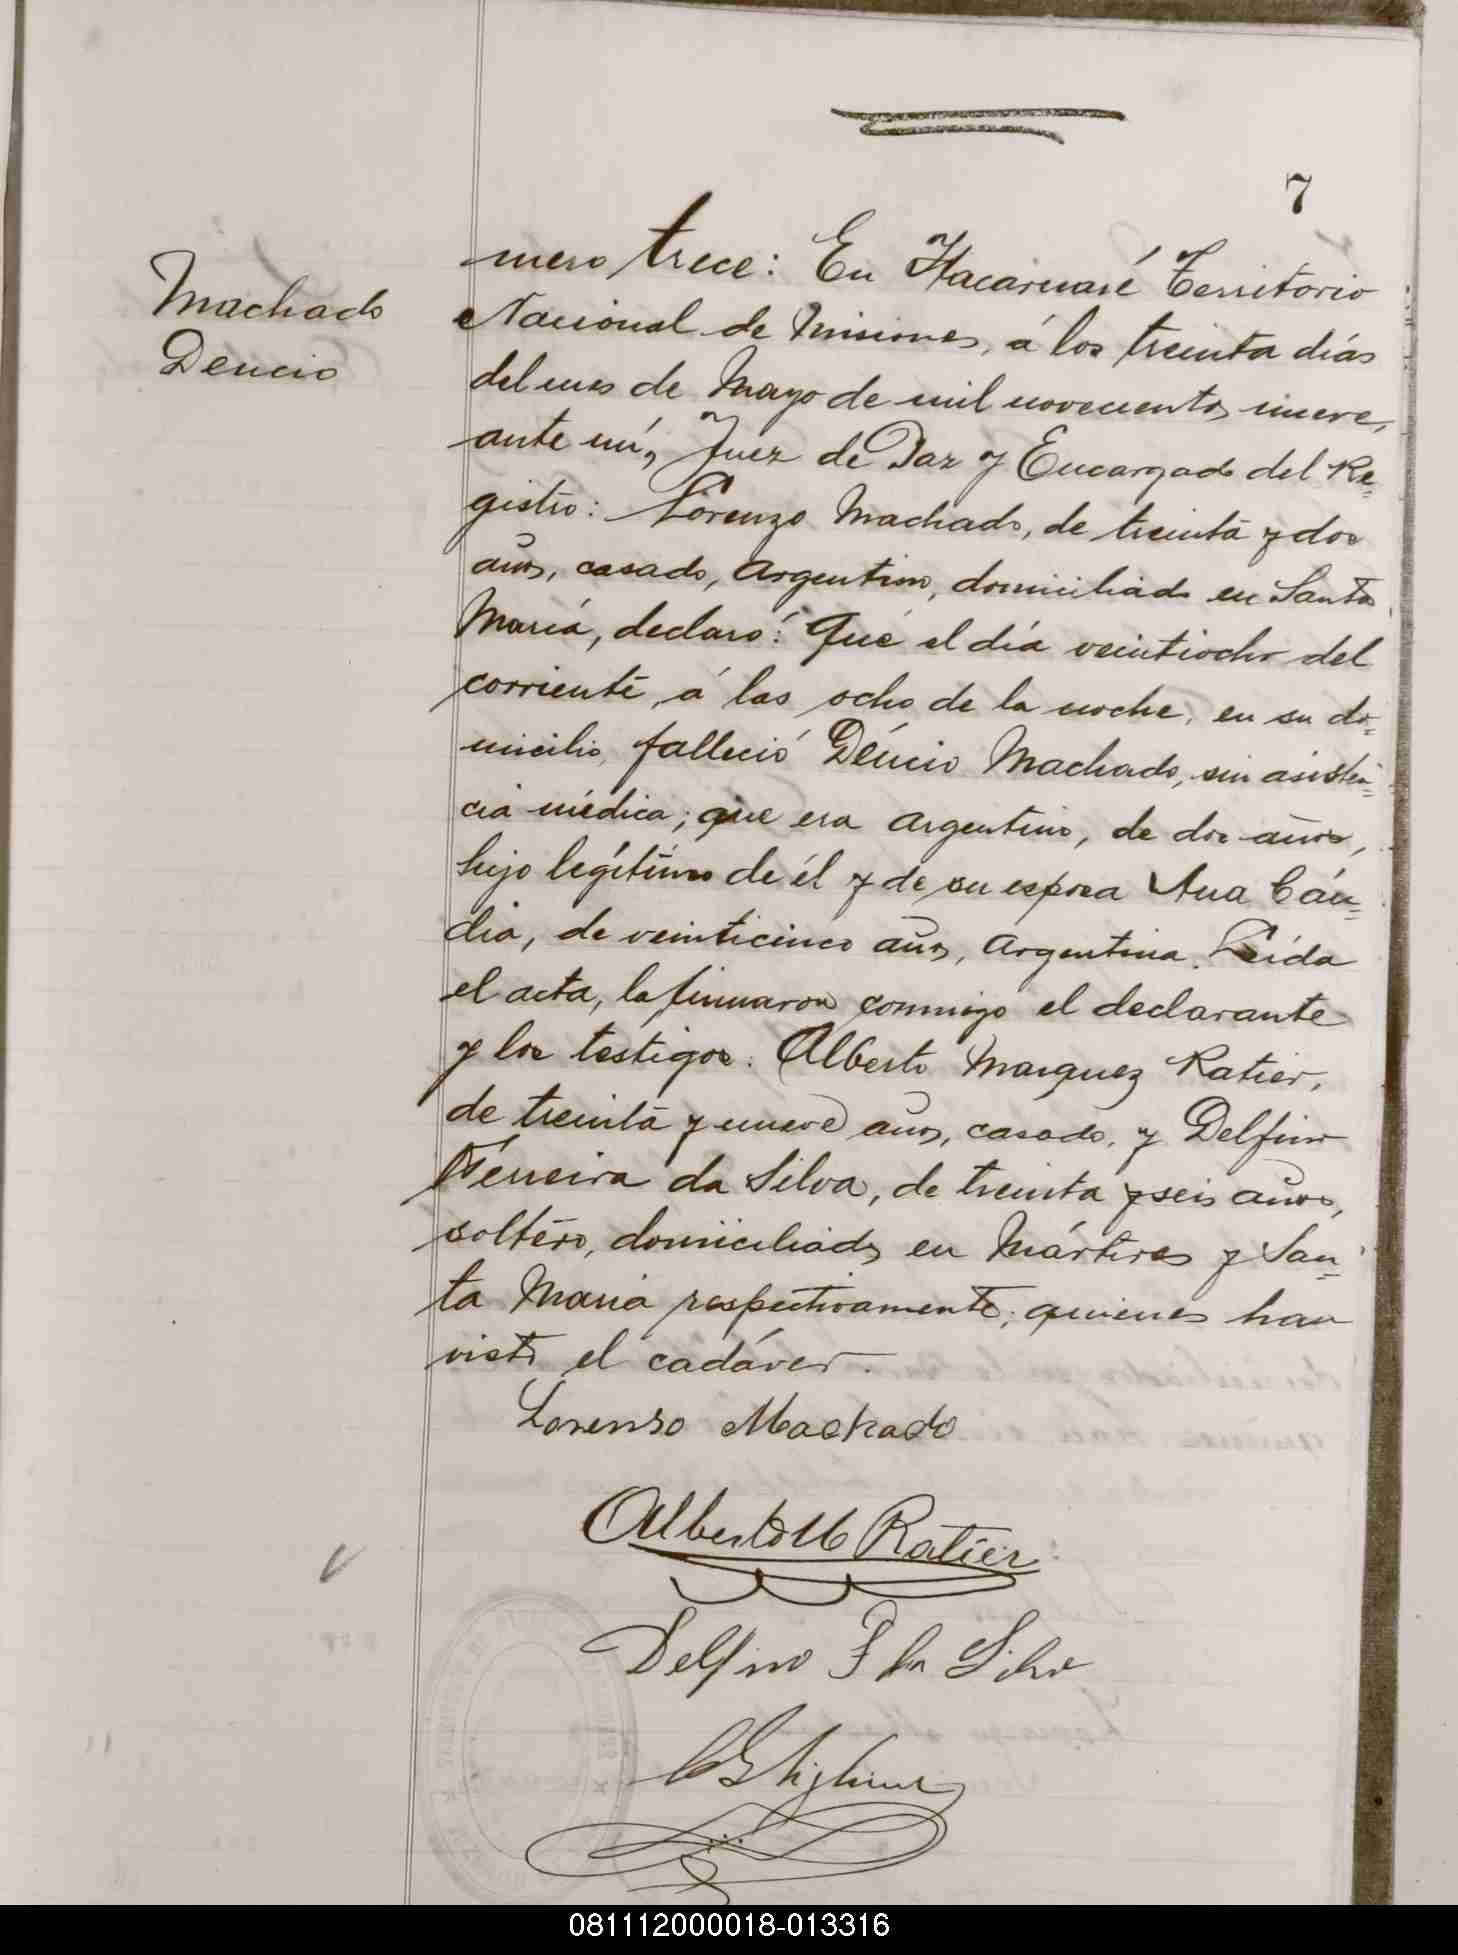 7
Machado
Deucio
mero trece: En Itacaruaré Territorio
Nacional de Misiones, á los treinta días
del mes de Mayo de mil novecientos nueve,
ante mí, Juez de Paz y Encargado del Re=
gistro: Lorenzo Machado, de treinta y dos
años, casado, argentino, domiciliado en Santa
María, declaró: Que el día veintiocho del
corriente, á las ocho de la noche, en su do=
micilio, falleció Déucio Machado, sin asisten=
cia médica; que era argentino, de dos años,
hijo legítimo de él y de su esposa Ana Cán=
dia, de veinticinco años, argentina. Leída
el acta, la firmaron conmigo el declarante
y los testigos: Alberto Marquez Ratier,
de treinta y nueve años, casado, y Delfino
Ferreira da Silva, de treinta y seis años,
soltero, domiciliados en Mártires y San=
ta María respectivamente; quienes han
visto el cadáver.
Lorenso Machado
Alberto M Ratier
Delfino F da Silva
081112000018-013316